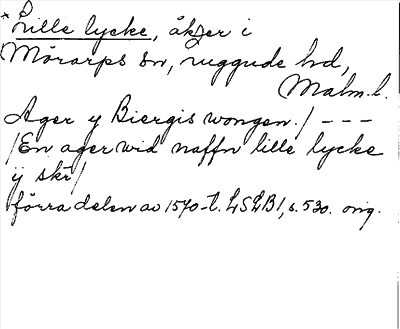 *Lille lycke, åker i
Mörarps sn, Luggude hd,
Malm.l.
Ager y Biergis wongen./ - - -
/En ager wid naffn lille lycke
ij skr/
förra delen av 1570-t. LSLB1, s. 530. orig.